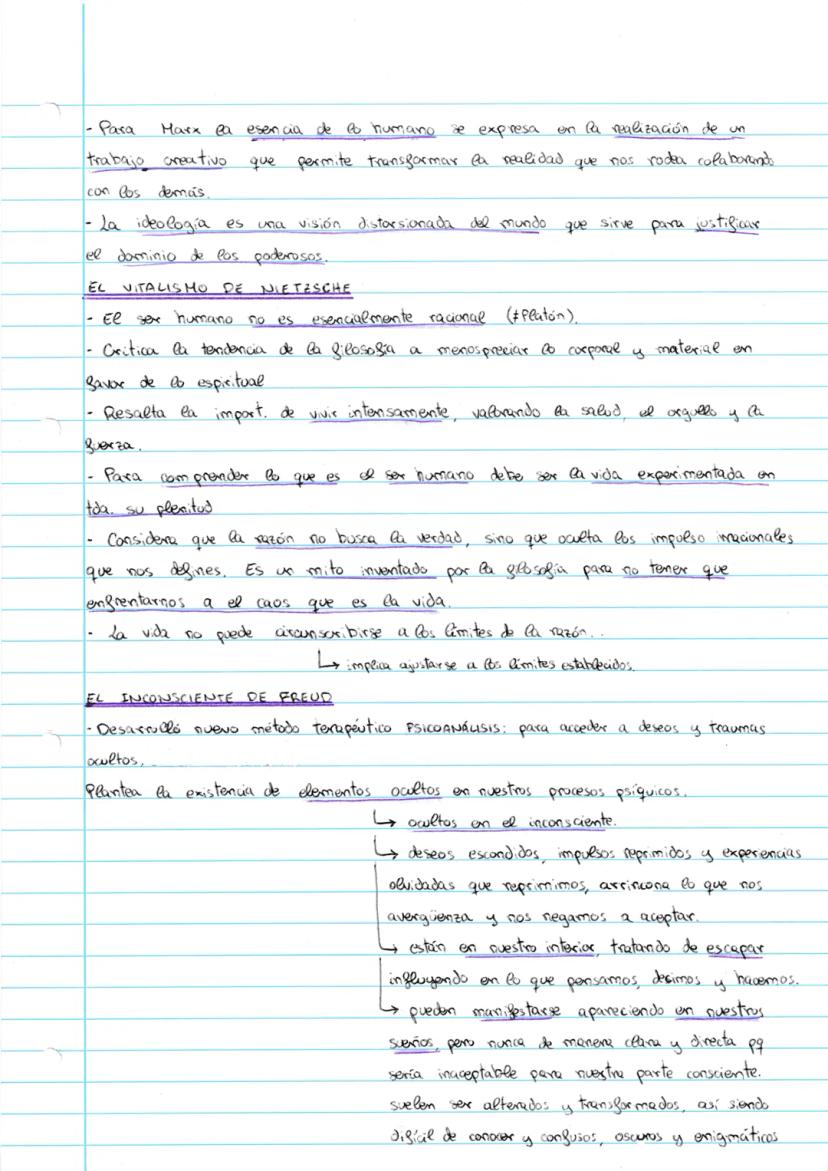 - Para Marx la esencia de lo humano se expresa en la realización de un
trabajo creativo que permite transformar la realidad que nos rodea colaborando
con los demás.
- La ideología es una visión distorsionada del mundo que sirve para justificar
el dominio de los poderosos.
EL VITALISMO DE NIETZSCHE
- El ser humano no es esencialmente racional (≠Platón).
- Critica la tendencia de la filosofía a menospreciar lo corporal y material en
favor de lo espiritual
- Resalta la import. de vivir intensamente, valorando la salud, el orgullo y la
fuerza.
- Para comprender lo que es el ser humano debe ser la vida experimentada en
tda. su plenitud
- Considera que la razón no busca la verdad, sino que oculta los impulso irracionales
que nos defines. Es un mito inventado por la filosofía para no tener que
enfrentarnos a el caos que es la vida.
- La vida no puede circunscribirse a los límites de la razón..
↳ implica ajustarse a los límites establecidos.
EL INCONSCIENTE DE FREUD
- Desarrolló nuevo método terapéutico PSICOANÁLISIS: para acceder a deseos y traumas
ocultos.
Plantea la existencia de elementos ocultos en nuestros procesos psíquicos.
↳ ocultos en el inconsciente.
↳ deseos escondidos, impulsos reprimidos y experiencias
olvidadas que reprimimos, arrincona lo que nos
avergüenza y nos negamos a aceptar.
↳ están en nuestro interior, tratando de escapar
influyendo en lo que pensamos, decimos y hacemos.
↳ pueden manifestarse apareciendo en nuestros
sueños, pero nunca de manera clara y directa pq
sería inaceptable para nuestra parte consciente.
suelen ser alterados y transformados, así siendo
difícil de conocer y confusos, oscuros y enigmáticos